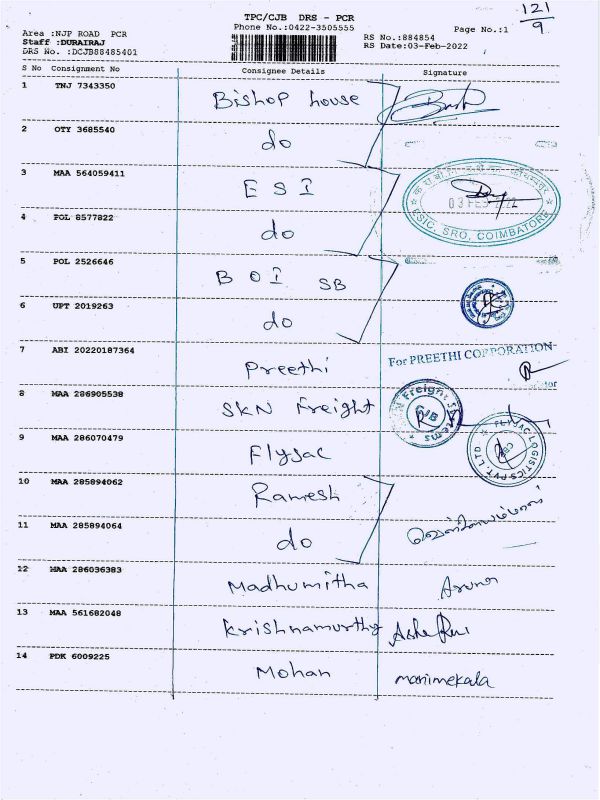 121
9
TPC/CJB DRS - PCR
Phone No.:0422-3505555
Page No.:1
Area :NJP ROAD PCR
Staff :DURAIRAJ
DRS No. :DCJB88485401
RS No.:884854
RS Date:03-Feb-2022
S No Consignment No Consignee Details Signature
1 TNJ 7343350 Bishop house
2 OTY 3685540 do
3 MAA 564059411 E S I
4 POL 8577822 do
03 FEB 2022
ESIC, SRO, COIMBATORE
5 POL 2526646 B O I SB
6 UPT 2019263 do
7 ABI 20220187364 Preethi
For PREETHI CORPORATION
8 MAA 286905538 SKN Freight
9 MAA 286070479 Flyjac
FLYJAC LOGISTICS PVT. LTD
10 MAA 285894062 Ramesh
11 MAA 285894064 do
12 MAA 286036383 Madhumitha
13 MAA 561682048 Krishnamurthy
14 PDK 6009225 Mohan manimekala